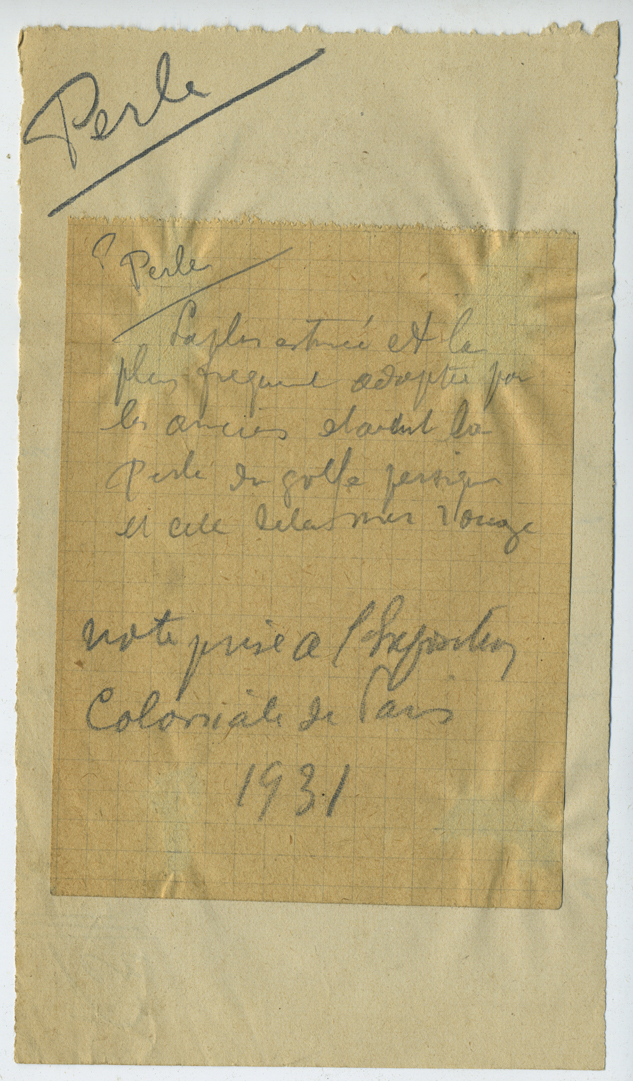 Perle
Perle
La plus estimée et la
plus frequent adoptée par
les anciens etaient la
Perle du golfe persique
et cele de la mer rouge
note prise a l'Exposition
Coloniale de Paris
1931